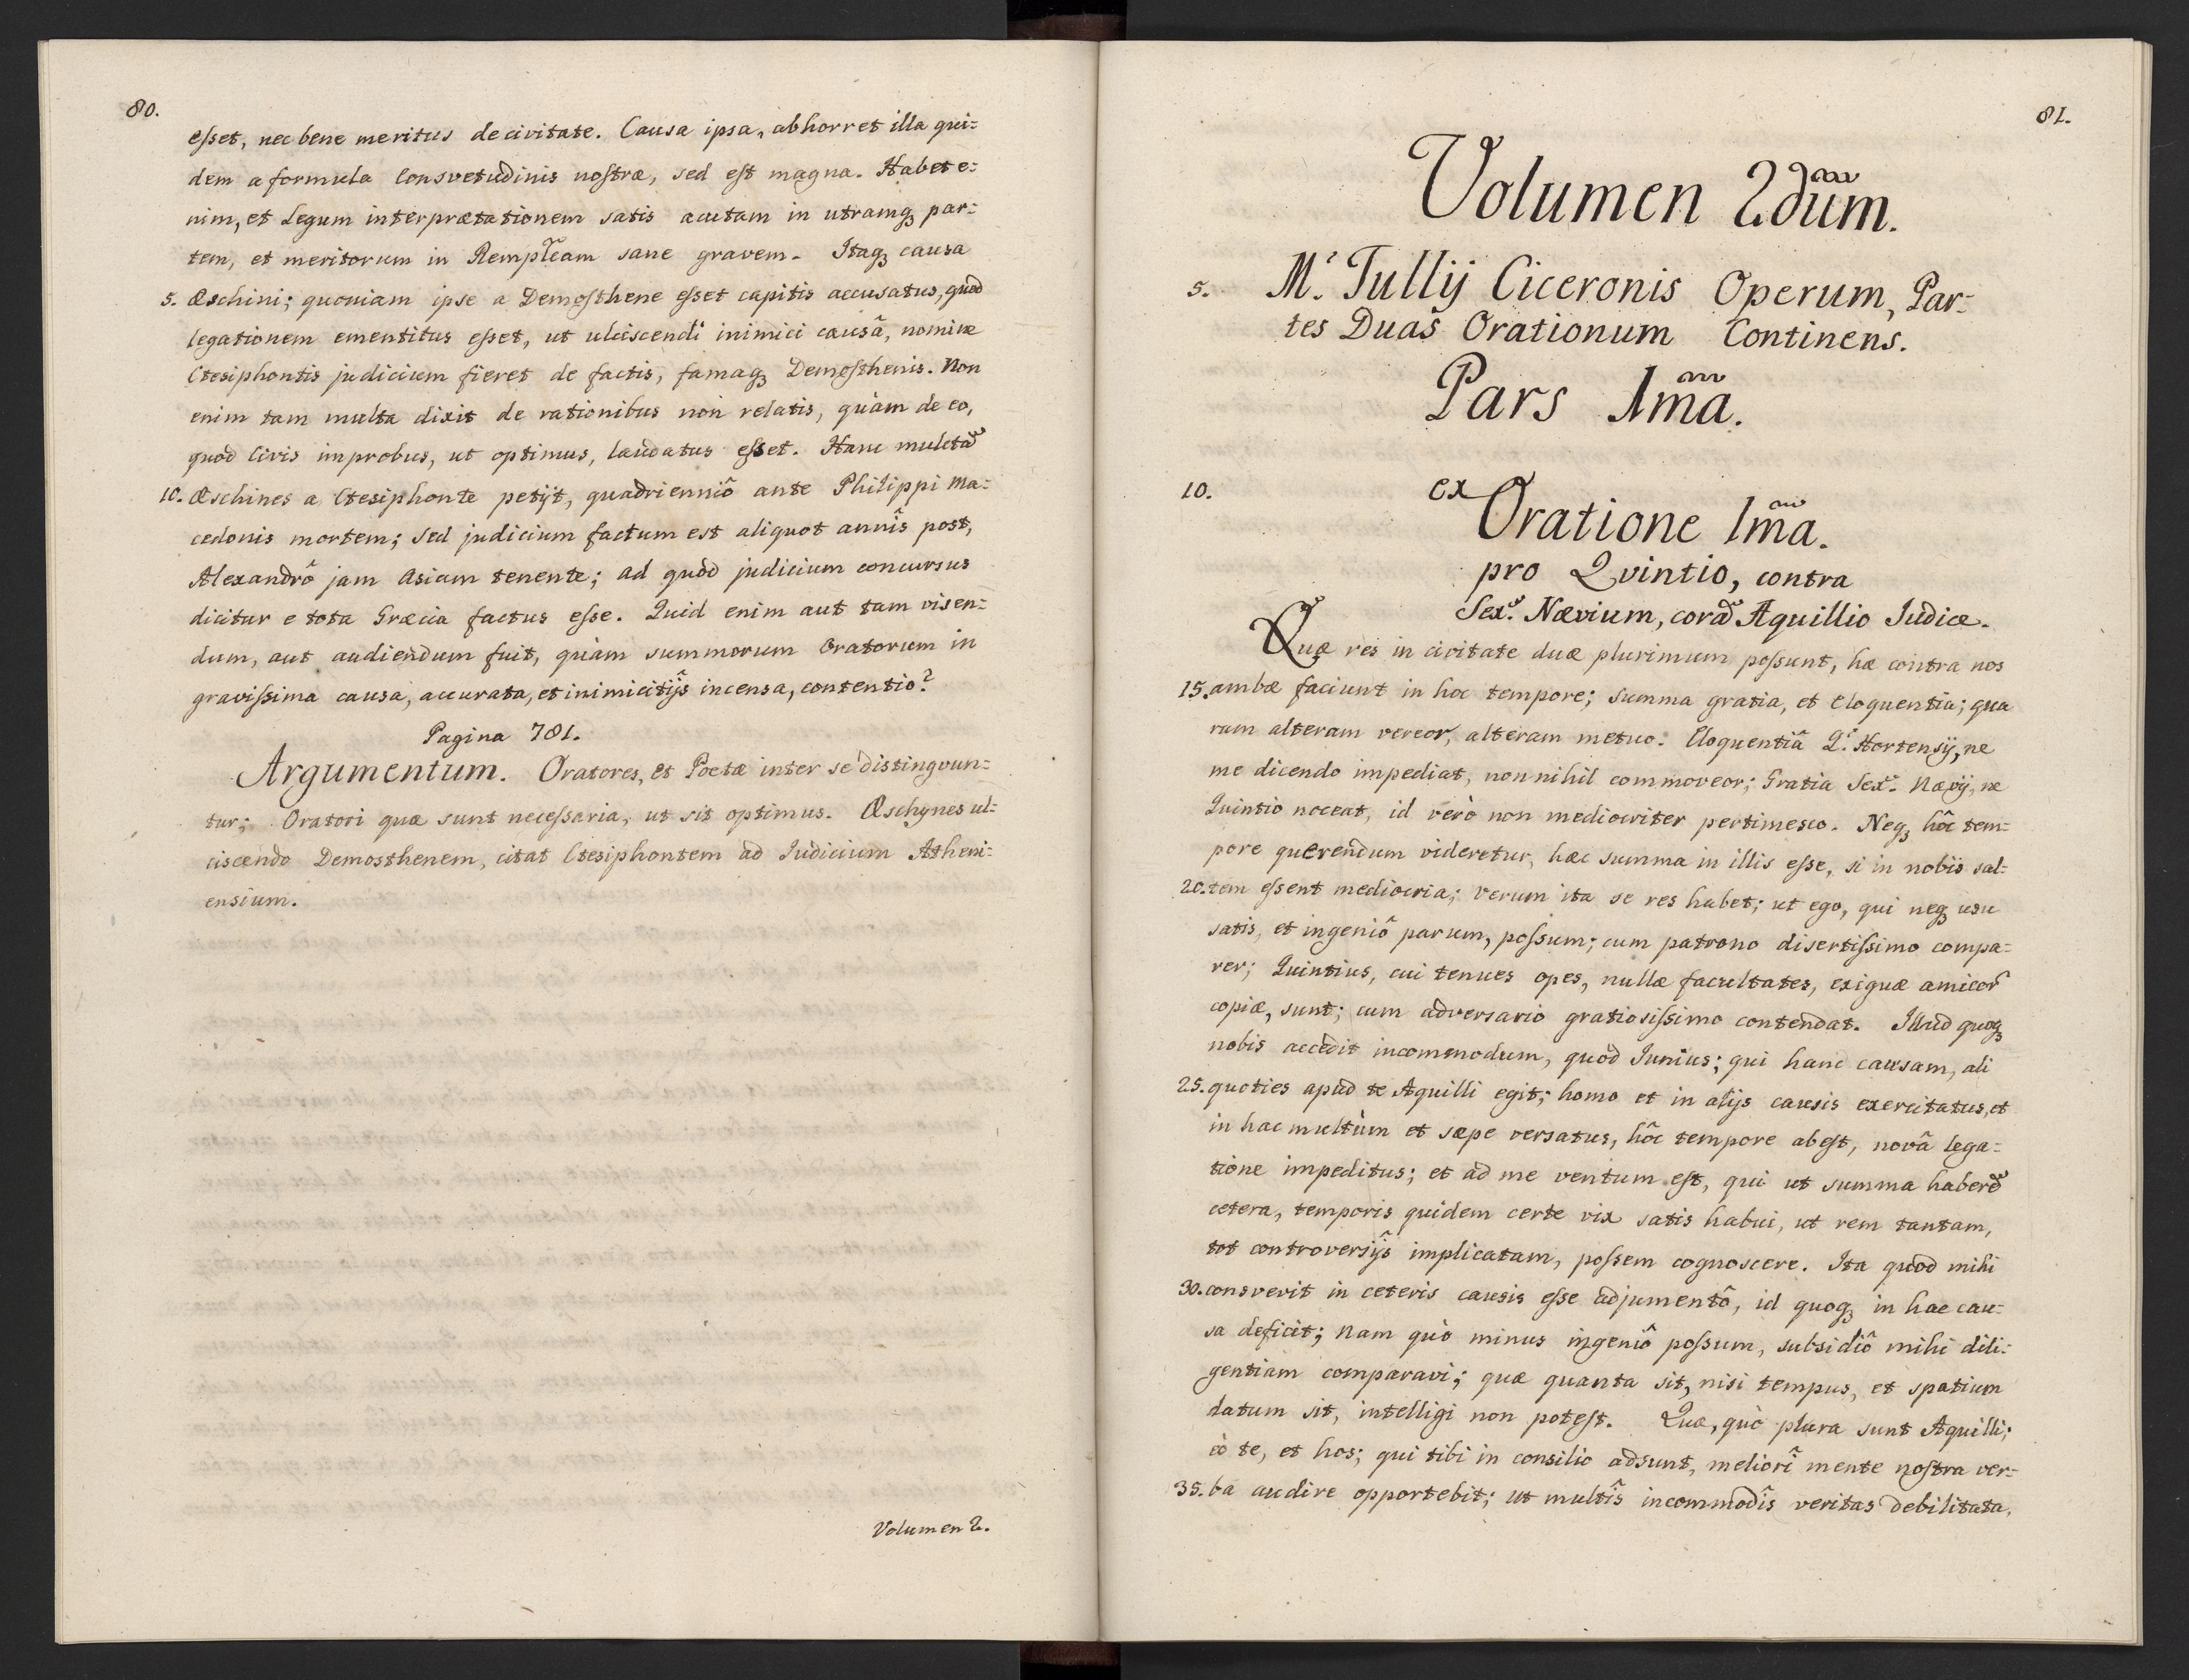 80.
eſset, nec bene meritus de civitate. Causa ipsa, abhorret illa qui=
dem a formula Consvetudinis noſtræ, sed eſt magna. Habet e=
nim, et Legum interprætationem satis acutam in utramqꝫ par=
tem, et meritorum in Remplc̃am sane gravem. Itaqꝫ causa
5. Æschini; quoniam ipse a Demoſthene eſset capitis accusatus, quod
legationem ementitus eſset, ut ulciscendi inimici causâ, nomine
Ctesiphontis judicium fieret de factis, famaqꝫ Demoſthenis. Non
enim tam multa dixit de rationibus non relatis, quàm de eo,
quod Civis improbus, ut optimus, laudatus eſset. Hanc mulctã
10. Æschines a Ctesiphonte petijt, quadrienniô ante Philippi Ma=
cedonis mortem; sed judicium factum est aliquot annîs post,
Alexandrô jam Asiam tenente; ad quod judicium concursus
dicitur e tota Græcia factus eſse. Quid enim aut tam visen=
dum, aut audiendum fuit, quàm summorum Oratorum in
graviſsima causa, accurata, et inimicitijs incensa, contentio?
Pagina 781.
Argumentum. Oratores, et Poetæ inter se distingvun=
tur; Oratori quæ sunt neceſsaria, ut sit optimus. Æschynes ul=
ciscendo Demosthenem, citat Ctesiphontem ad Iudicium Atheni=
ensium.
Volumen 2.
81.
Volumen 2dũm.
5. M. Tullij Ciceronis Operum, Par=
tes Duas Orationum Continens.
Pars 1mã.
10. ex
Oratione 1mã.
pro Qvintio, contra
Sex. Nævium, corã Aquillio Iudice.
Quæ res in civitate duæ plurimum poſsunt, hæ contra nos
15. ambæ faciunt in hoc tempore; summa gratia, et eloquentia; qua
rum alteram vereor, alteram metuo. Eloquentiâ Q. Hortensij, ne
me dicendo impediat, non nihil commoveor; Gratia Sex. Nævij, ne
Quintio noceat, id verò non mediocriter pertimesco. Neqꝫ hôc tem=
pore querendum videretur, hæc summa in illis eſse, si in nobis sal=
20. tem eſsent mediocria; verum ita se res habet; ut ego, qui neqꝫ usu
satis, et ingeniô parum, poſsum; cum patrono disertiſsimo compa=
rer; Quintius, cui tenues opes, nullæ facultates, exiguæ amicor̃
copiæ, sunt; cum adversario gratiosiſsimo contendat. Illud quoqꝫ
nobis accedit incommodum, quòd Iunius; qui hanc causam, ali
25. quoties apud te Aquilli egit; homo et in alijs causis exercitatus, et
in hac multùm et sæpe versatus, hôc tempore abeſt, novâ lega=
tione impeditus; et ad me ventum eſt, qui ut summa haberẽ
cetera, temporis quidem certe vix satis habui, ut rem tantam,
tot controversijs implicatam, poſsem cognoscere. Ita quod mihi
30. consvevit in ceteris causis eſse adjumentô, id quoqꝫ in hac cau=
sa deficit; nam quò minus ingeniô poſsum, subsidiô mihi dili=
gentiam comparavi; quæ quanta sit, nisi tempus, et spatium
datum sit, intelligi non poteſt. Quæ, quò plura sunt Aquilli;
eò te, et hos; qui tibi in consilio adsunt, meliorî mente noſtra ver=
35. ba audire opportebit; ut multîs incommodîs veritas debilitata,